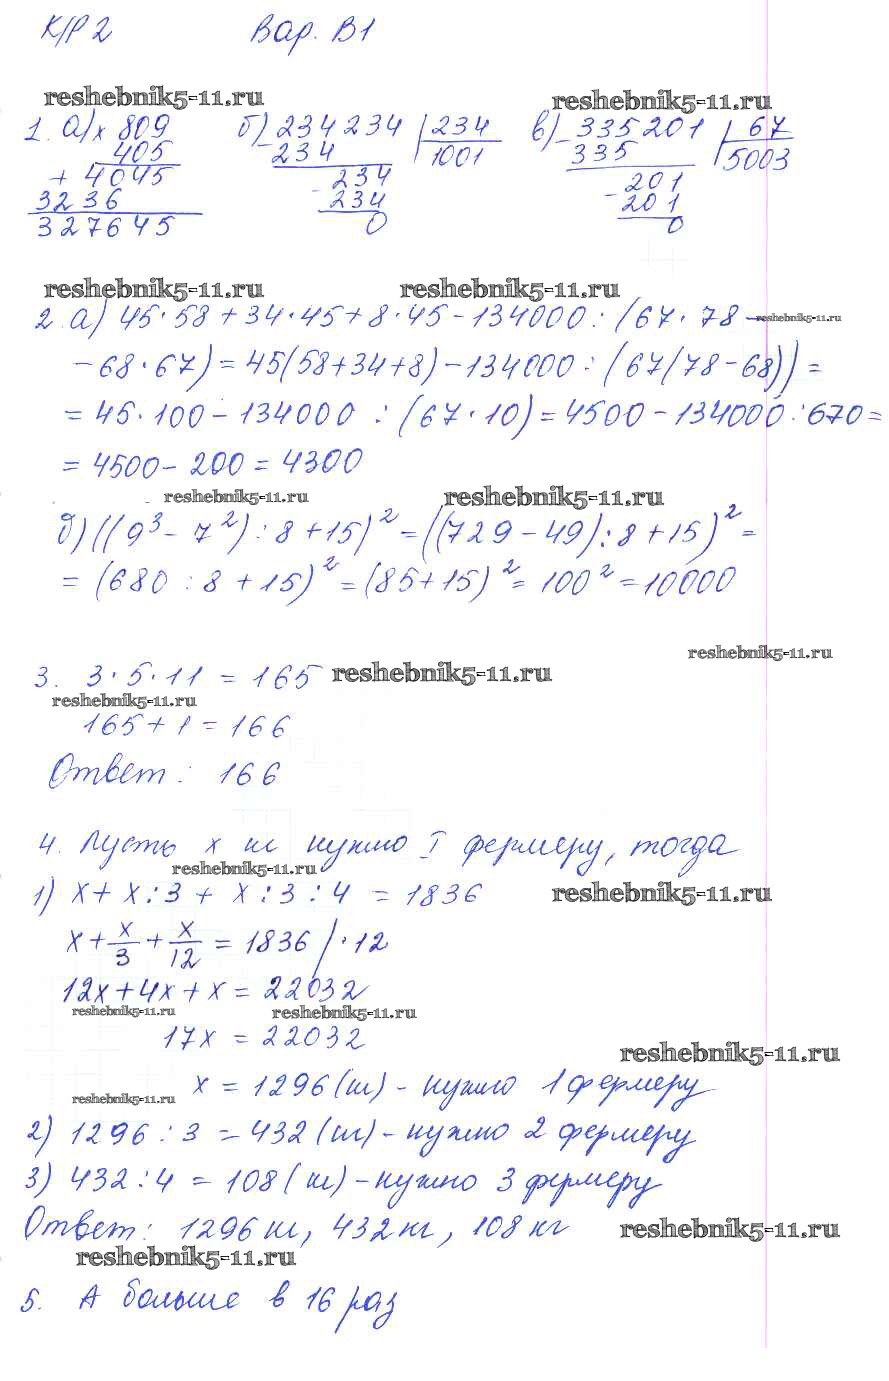 К/Р 2 Вар. В1
reshebnik5-11.ru reshebnik5-11.ru
1. а) х 809 б) 234234 | 234 в) 335201 | 67
405 - 234 1001 - 335 5003
+ 4045 234 201
3236 - 234 - 201
327645 0 0
reshebnik5-11.ru reshebnik5-11.ru
2. а) 45·58+34·45+8·45-134000:(67·78- reshebnik5-11.ru
-68·67)=45(58+34+8)-134000:(67(78-68))=
=45·100-134000:(67·10)=4500-134000:670=
=4500-200=4300
reshebnik5-11.ru reshebnik5-11.ru
б) ((9³-7²):8+15)²=((729-49):8+15)²=
=(680:8+15)²=(85+15)²=100²=10000
reshebnik5-11.ru
3. 3·5·11=165 reshebnik5-11.ru
reshebnik5-11.ru
165+1=166
Ответ: 166
4. Пусть х кг нужно I фермеру, тогда
reshebnik5-11.ru
1) х+х:3+х:3:4=1836 reshebnik5-11.ru
х+х/3+х/12=1836 /·12
12х+4х+х=22032
reshebnik5-11.ru reshebnik5-11.ru
17х=22032
reshebnik5-11.ru
х=1296(кг)-нужно 1 фермеру
reshebnik5-11.ru
2) 1296:3=432(кг)-нужно 2 фермеру
3) 432:4=108(кг)-нужно 3 фермеру
Ответ: 1296 кг, 432 кг, 108 кг reshebnik5-11.ru
reshebnik5-11.ru
5. А больше в 16 раз